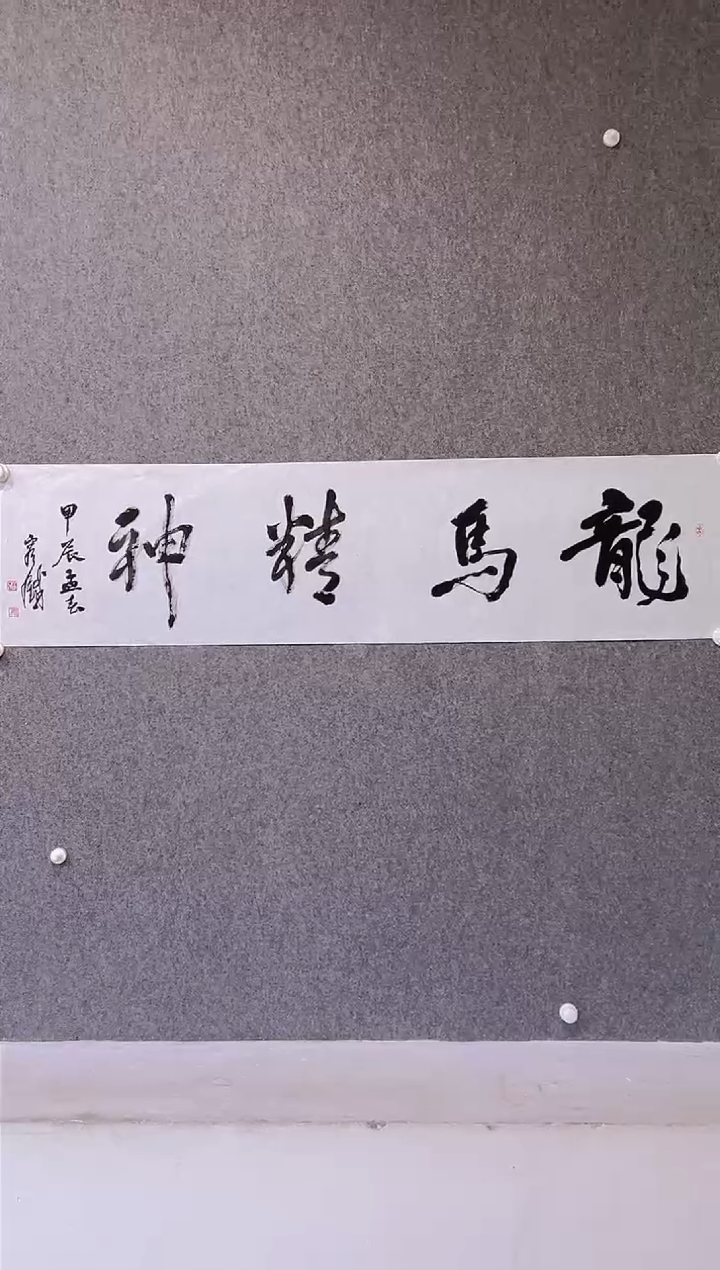 龍馬精神
甲辰孟春